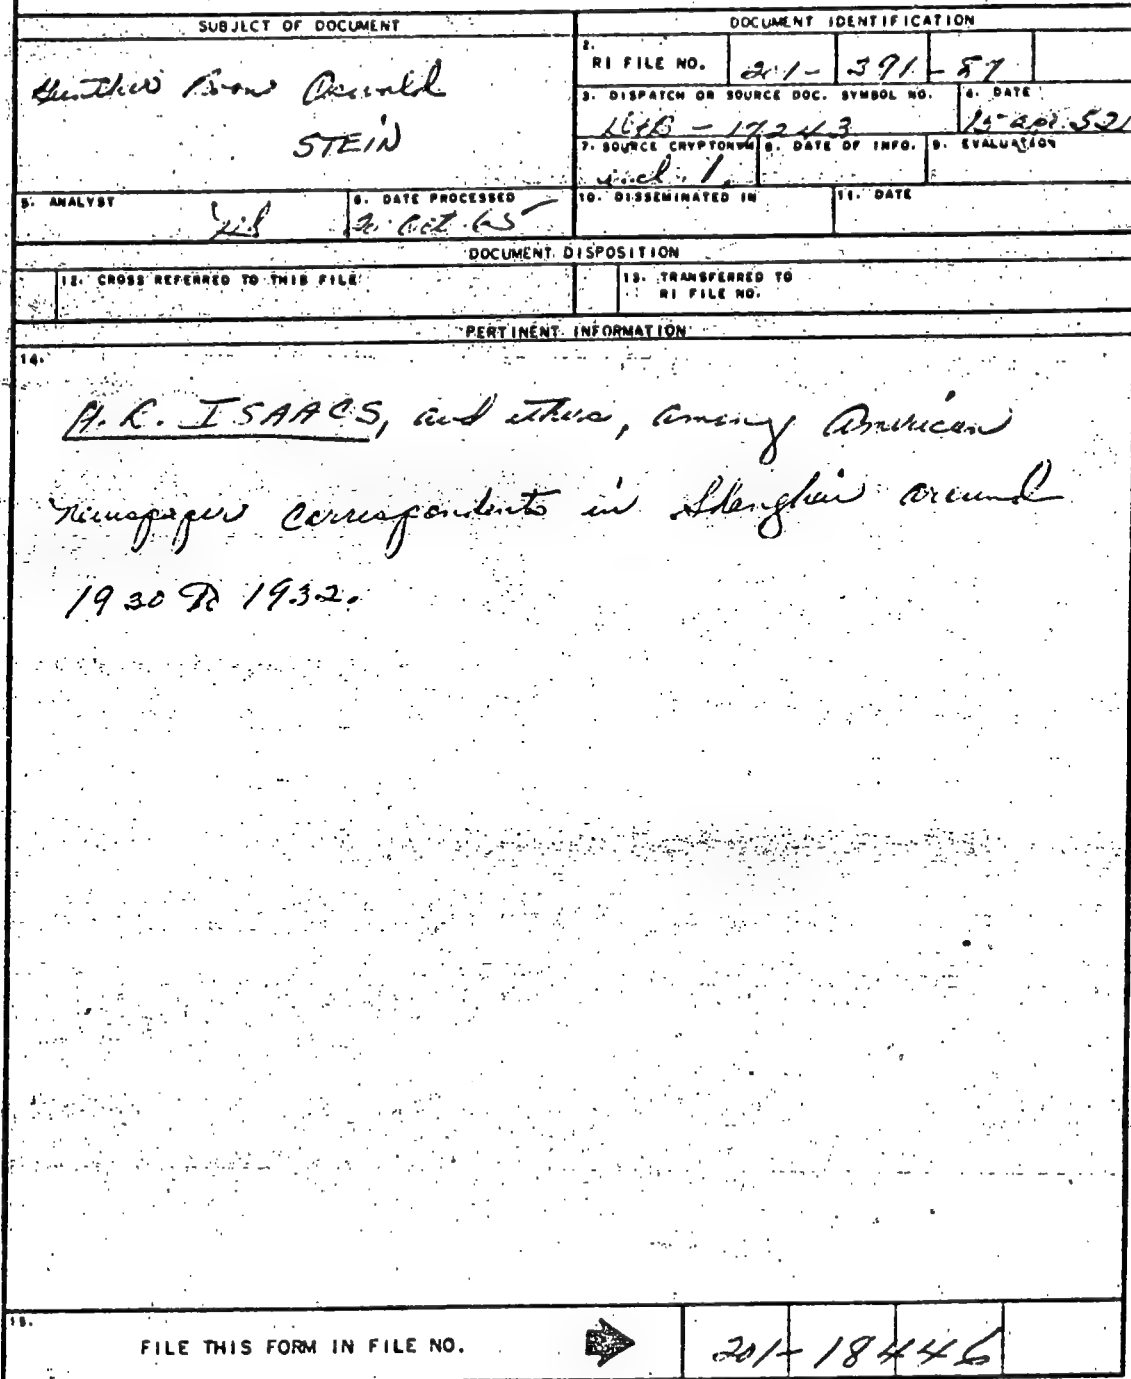 SUBJECT OF DOCUMENT
DOCUMENT IDENTIFICATION
STEIN
2.
RI FILE NO. 201- 391 - 57
3. DISPATCH OR SOURCE DOC. SYMBOL NO.
- 17243
4. DATE
15 apr. 52
7. SOURCE CRYPTONYM
incl. 1.
8. DATE OF INFO.
9. EVALUATION
5. ANALYST
6. DATE PROCESSED
20 Oct. 65
10. DISSEMINATED IN
11. DATE
DOCUMENT DISPOSITION
12. CROSS REFERRED TO THIS FILE
13. TRANSFERRED TO
RI FILE NO.
PERTINENT INFORMATION
14.
H. R. ISAACS, and others, among American
newspaper correspondents in Shanghai around
1930 to 1932.
15.
FILE THIS FORM IN FILE NO.
201- 18446